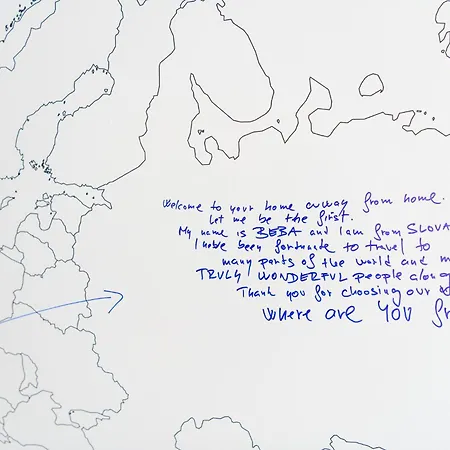 Welcome to your home away from home.
Let me be the first.
My name is BEBA and I am from SLOVA
I have been fortunate to travel to
many parts of the world and m
TRULY WONDERFUL people along
Thank you for choosing our
Where are YOU fr